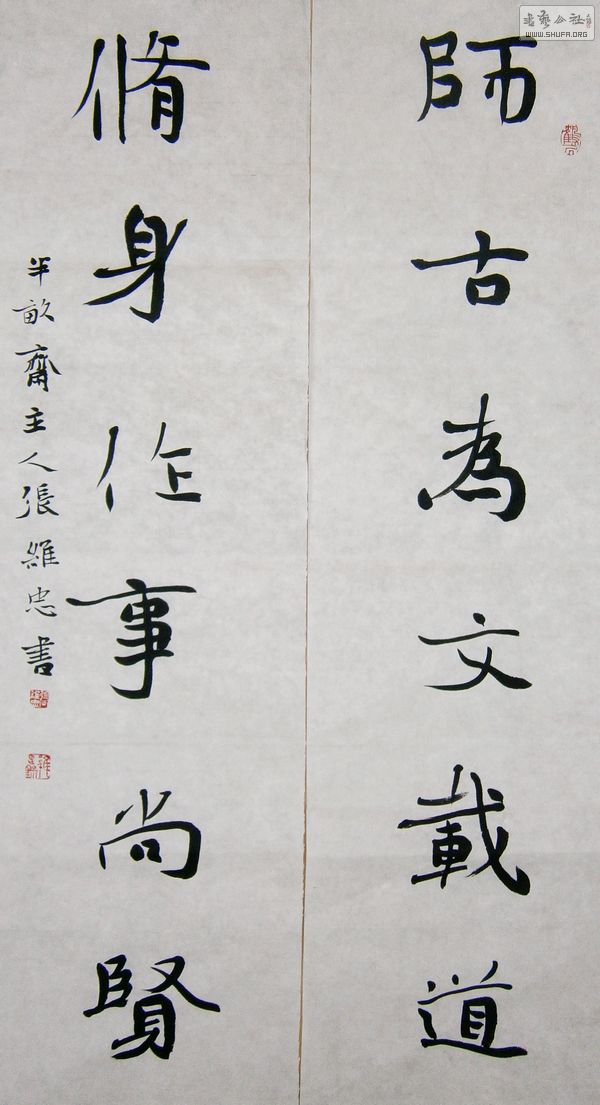 師古為文載道
脩身作事尚賢
半畝齋主人張維忠書
書藝公社
WWW.SHUFA.ORG